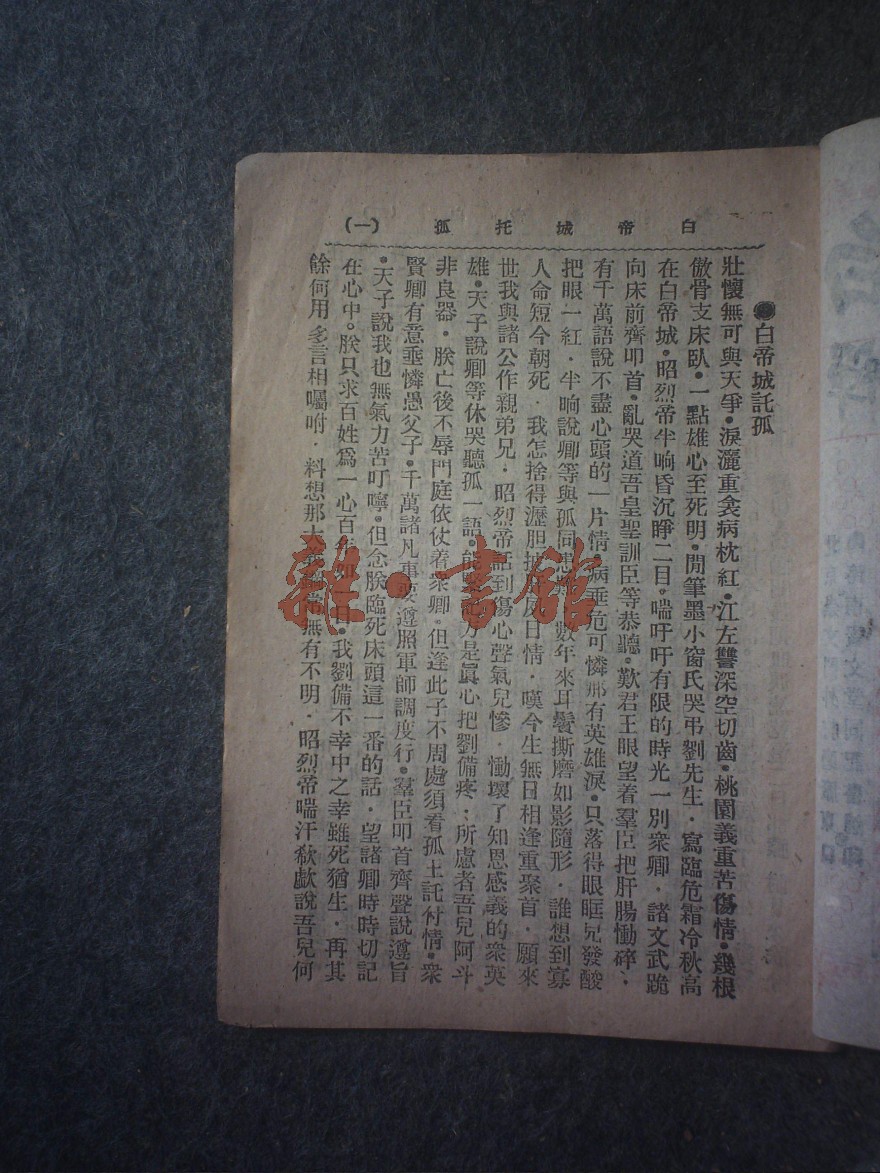 白帝城托孤 (一)
●白帝城託孤
壯懷無可與天爭·淚灑重衾病枕紅·江左讐深空切齒·桃園義重苦傷情·幾根
傲骨支床臥·一點雄心至死明·閒筆墨小窗氏哭弔劉先生·寫臨危霜冷秋高
在白帝城·昭烈帝半晌昏沉睜二目·喘吁吁有限的時光一別衆卿·諸文武跪
向床前齊叩首·亂哭道吾皇聖訓臣等恭聽·歎君王眼望着羣臣把肝腸慟碎·
有千萬語說不盡心頭的一片情·病垂危可憐那有英雄淚·只落得眼眶兒發酸
把眼一紅·半晌說卿等與孤同患難·數年來耳鬢撕磨如影隨形·誰想到寡
人命短今朝死·我怎捨得瀝胆披日情·嘆今生無日相逢重聚首·願來
世我與諸公作親弟兄·昭烈帝話到傷心聲氣兒慘·慟壞了知恩感義的衆英
雄·天子說卿等休哭聽孤一語·能方是眞心把劉備疼·所慮者吾兒阿斗
非良器·朕亡後不辱門庭依仗着衆卿·但逢此子不周處須看孤土託付情·衆
賢卿有意垂憐愚父子·千萬諸凡事要遵照軍師調度行·羣臣叩首齊聲說遵旨
·天子說我也無氣力苦叮嚀·但念朕臨死床頭這一番的話·望諸卿時時切記
在心中·朕只求百姓爲一心百年如一日·我劉備不幸中之幸雖死猶生·再其
餘何用多言相囑咐·料想那大義常無有不明·昭烈帝喘汗欷歔說吾兒何
雜·書館